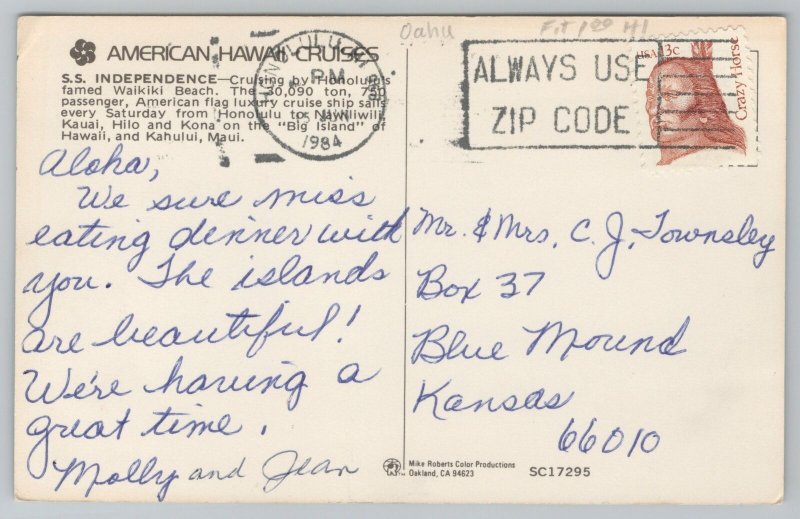 Oahu
AMERICAN HAWAII CRUISES
S.S. INDEPENDENCE—Cruising by Honolulu's
famed Waikiki Beach. The 30,090 ton, 750
passenger, American flag luxury cruise ship sails
every Saturday from Honolulu to Nawiliwili,
Kauai, Hilo and Kona on the "Big Island" of
Hawaii, and Kahului, Maui.
HONOLULU
PM
JAN
1984
ALWAYS USE
ZIP CODE
USA 13c
Crazy Horse
Aloha,
We sure miss
eating dinner with
you. The islands
are beautiful!
We're having a
great time.
Molly and Jean
Mr. & Mrs. C. J. Townsley
Box 37
Blue Mound
Kansas
66010
Mike Roberts Color Productions
Oakland, CA 94623
SC17295